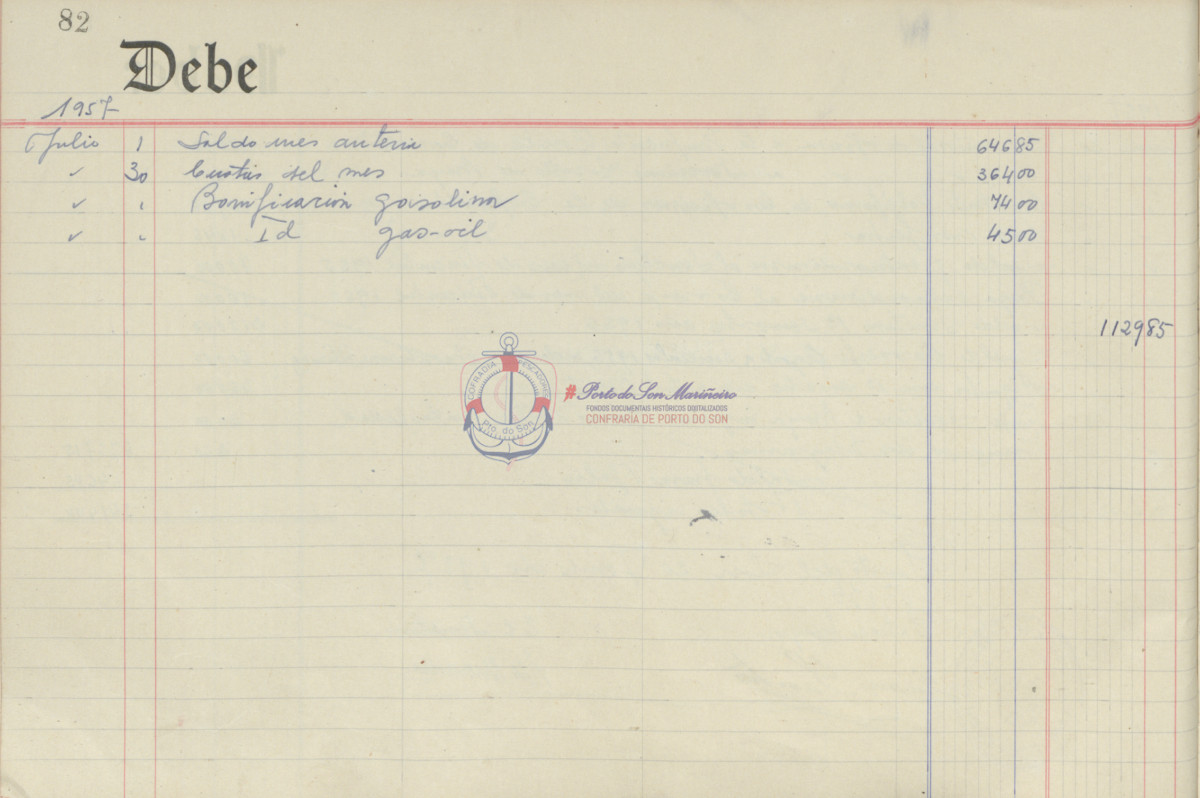 82
Debe
1957
Julio 1 Saldo mes anterior 646 85
✓ 30 Cuotas del mes 364 00
✓ " Bonificación gasolina 74 00
✓ " Id gas-oil 45 00
1129 85
COFRADIA PESCADORES
Pto. do Son
#Porto do Son Mariñeiro
FONDOS DOCUMENTAIS HISTÓRICOS DIXITALIZADOS
CONFRARÍA DE PORTO DO SON